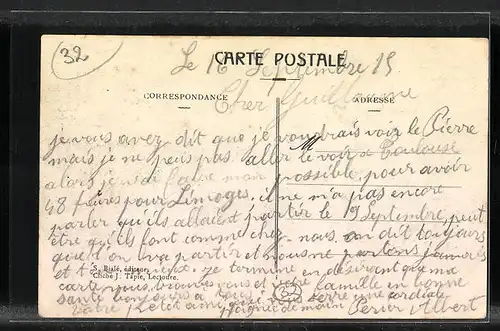 32
CARTE POSTALE
Le 16 Septembre 15
CORRESPONDANCE
ADRESSE
Cher Guillaume
je vous avez dit que je voudrais voir le Pierre
mais je ne peus pas aller le voir à Toulouse
M
alors je vais faire mon possible pour avoir
48 heures pour Limoges, il ne m'a pas encore
parler qu'ils allaient partir le 19 Septembre, peut
être qu'ils font comme chez nous, on dit toujours
qu'on va partir et nous ne partons jamais
S. Bialé, éditeur
et je termine en désirent que ma
Cliché J. Tapie, Lectoure.
carte vous trouve vous et votre famille en bonne
santé bonjours à tous et serre une cordiale
votre petit ami poignée de main Perier Albert